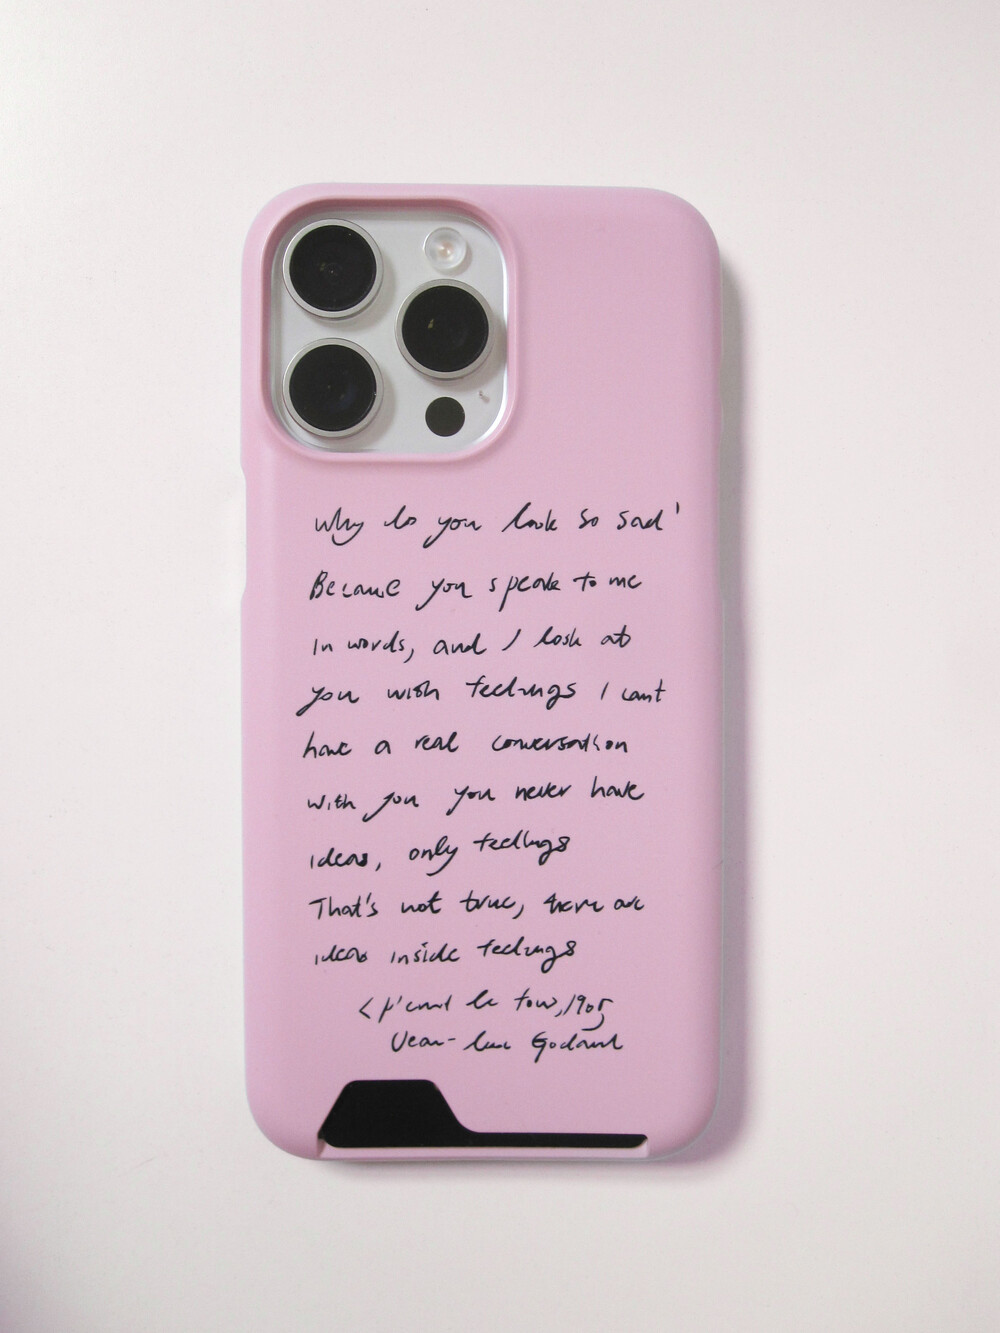 Why do you look so sad'
Because you speak to me
in words, and I look at
you with feelings I cant
have a real conversation
with you you never have
ideas, only feelings
That's not true, there are
ideas inside feelings
le fou, 1965
Jean-luc Godard